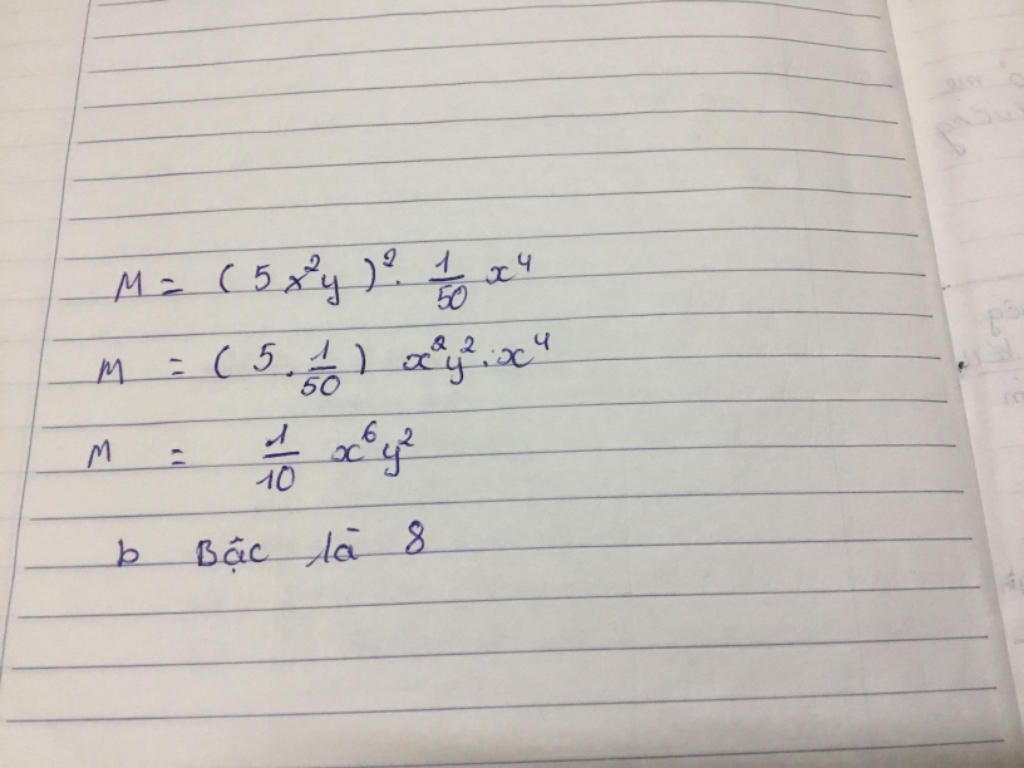 M = ( 5 x²y )² . 1/50 x⁴
M = ( 5 . 1/50 ) x²y² . x⁴
M = 1/10 x⁶y²
b Bậc là 8